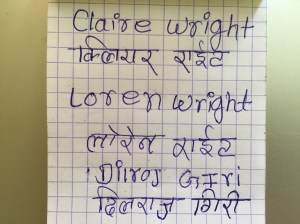 Claire Wright
क्लियर राईट
Loren Wright
लोरेन राईट
Dilroj Giri
दिलराज गिरी